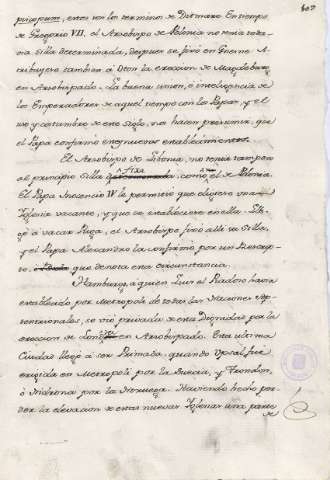 principum, estos son los terminos de Ditmaro. En tiempo
de Gregorio VII, el Arzobispo de Polonia no tenia toda-
Silla determinada, despues se fixó en Gnesne. A
tribuyese tambien á Oton la ereccion de Magdeburg
en Arzobispado. La buena union, é inteligencia de
los Emperadores de aquel tiempo con los Papas, y el
uso y costumbre de este siglo, no hacen presumir, que
el Papa confirmó estos nuevos establecimientos.
El Arzobispo de Livonia, no tenia tampoco
al principio Silla fixa, como el de Polonia.
El Papa Inocencio IV le permitió que eligiese una
Iglesia vacante, y que se estableciese en ella. Lle-
gó á vacar Riga, el Arzobispo fixó allí su Silla,
y el Papa Alexandro la confirmó por un Rescrip-
to, que denota esta circunstancia.
Hamburgo, á quien Luis el Piadoso havia
establecido por Metropole de todas las Naciones Sep-
tentrionales, se vió privada de esta Dignidad por la
ereccion de en Arzobispado. Esta ultima
Ciudad llegó á ser Primada, quando Upsal fue
erigida en Metropole por la Suecia, y Trondon,
ó Nidrosia por la Noruega. Haviendo hecho per-
der la elevacion de estas nuevas Iglesias una parte
de